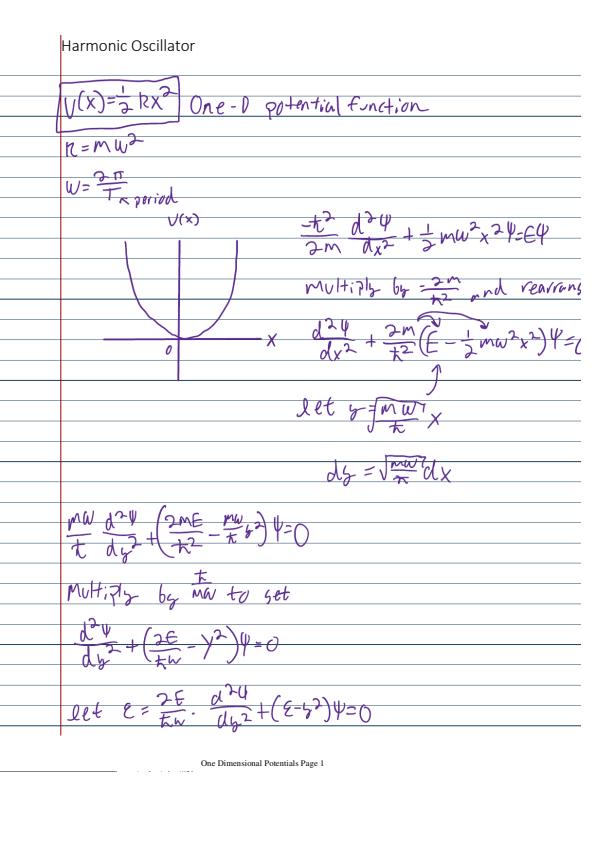 Harmonic Oscillator
V(x)=½ kx² One-D potential function
k = mω²
ω = 2π/T ↖ period
V(x)
0
x
-ħ²/2m d²ψ/dx² + ½ mω²x²ψ=Eψ
Multiply by -2m/ħ² and rearrang
d²ψ/dx² + 2m/ħ² (E - ½ mω²x²)ψ=0
let y=√(mω/ħ) x
dy = √(mω/ħ) dx
mω/ħ d²ψ/dy² + (2mE/ħ² - mω/ħ y²)ψ=0
Multiply by ħ/mω to get
d²ψ/dy² + (2E/ħω - y²)ψ=0
let ε = 2E/ħω . d²ψ/dy² + (ε-y²)ψ=0
One Dimensional Potentials Page 1